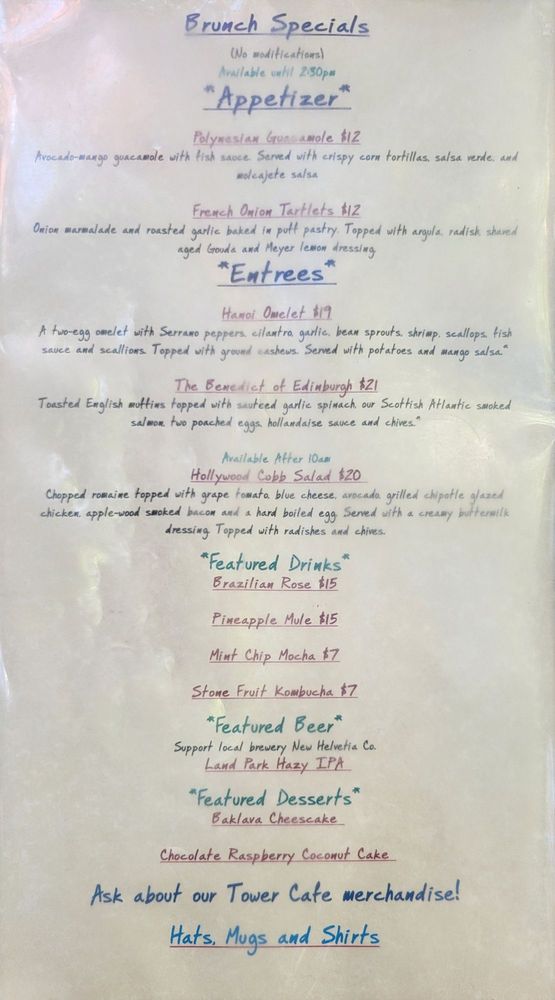 Brunch Specials
(No modifications)
Available until 2:30pm
*Appetizer*
Polynesian Guacamole $12
Avocado-mango guacamole with fish sauce. Served with crispy corn tortillas, salsa verde, and
molcajete salsa
French Onion Tartlets $12
Onion marmalade and roasted garlic baked in puff pastry. Topped with argula, radish, shaved
aged Gouda and Meyer lemon dressing.
*Entrees*
Hanoi Omelet $19
A two-egg omelet with Serrano peppers, cilantro, garlic, bean sprouts, shrimp, scallops, fish
sauce and scallions. Topped with ground cashews. Served with potatoes and mango salsa.*
The Benedict of Edinburgh $21
Toasted English muffins topped with sauteed garlic spinach, our Scottish Atlantic smoked
salmon, two poached eggs, hollandaise sauce and chives.*
Available After 10am
Hollywood Cobb Salad $20
Chopped romaine topped with grape tomato, blue cheese, avocado, grilled chipotle glazed
chicken, apple-wood smoked bacon and a hard boiled egg. Served with a creamy buttermilk
dressing. Topped with radishes and chives.
*Featured Drinks*
Brazilian Rose $15
Pineapple Mule $15
Mint Chip Mocha $7
Stone Fruit Kombucha $7
*Featured Beer*
Support local brewery New Helvetia Co.
Land Park Hazy IPA
*Featured Desserts*
Baklava Cheescake
Chocolate Raspberry Coconut Cake
Ask about our Tower Cafe merchandise!
Hats, Mugs and Shirts